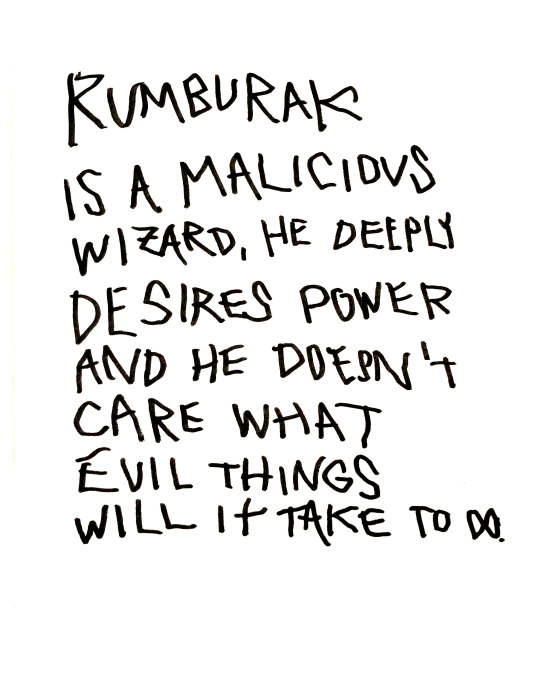 RUMBURAK
IS A MALICIOUS
WIZARD, HE DEEPLY
DESIRES POWER
AND HE DOESN't
CARE WHAT
EVIL THINGS
WILL It TAKE TO DO.